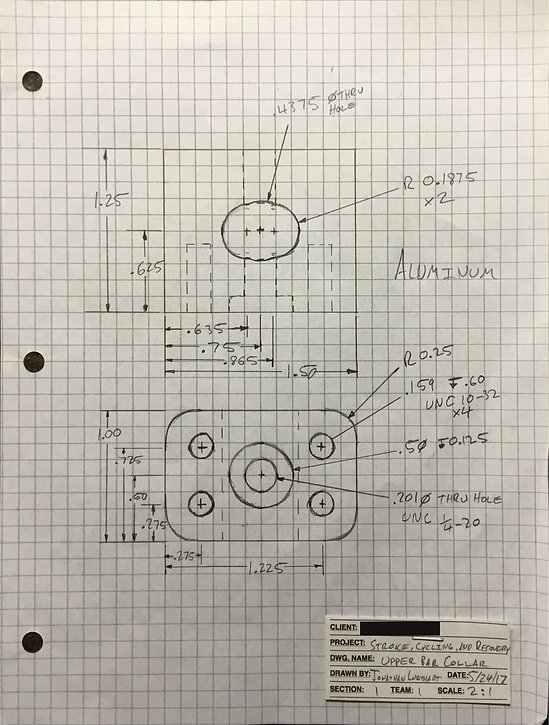 .4375 Ø THRU
HOLE
R 0.1875
×2
1.25
.625
ALUMINUM
.635
.75
.865
1.50
R 0.25
.159 ↧.60
UNC 10-32
×4
1.00
.725
.50 ↧0.125
.60
.275
.201Ø THRU HOLE
UNC 1/4-20
.275
1.225
CLIENT:
PROJECT: STROKE, CYCLING, AND RECOVERY
DWG. NAME: UPPER BAR COLLAR
DRAWN BY: JONATHAN DATE: 5/24/17
SECTION: 1 TEAM: 1 SCALE: 2:1